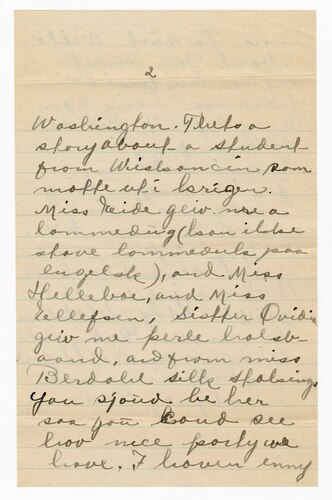 2
Washington. Thets a
story about a student
from Wistsoncin som
motte ut i krigen.
Miss Eide geiv mee a
lommedug (kan ikke
stave lommeduk paa
engelsk), and Miss
Helleboe, and Miss
Eellefsen, Sisther Ovidia
giv me perle halsb-
aand, and from miss
Berdahl silk stokings
You sjoud be her
saa you coud see
hov nice porty we
have. I haven enny